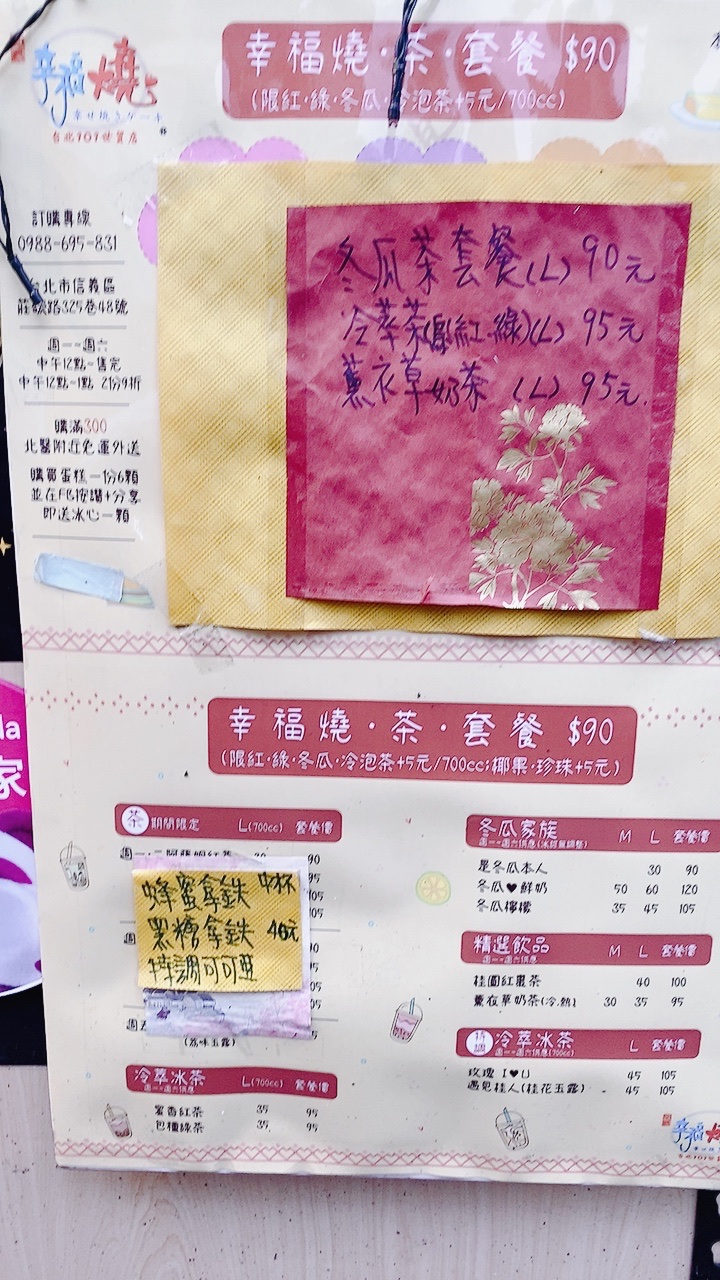 幸福燒
台北101世貿店
幸福燒·茶·套餐 $90
(限紅·綠·冬瓜·冷泡茶+5元/700cc)
訂購專線
0988-695-831
台北市信義區
莊敬路325巷48號
週一~週六
中午12點~售完
中午12點~1點 2份9折
購滿300
北醫附近免運外送
購買蛋糕一份6顆
並在FB按讚+分享
即送冰心一顆
冬瓜茶套餐(L) 90元
冷萃茶 紅.綠)(L) 95元
薰衣草奶茶 (L) 95元.
幸福燒·茶·套餐 $90
(限紅·綠·冬瓜·冷泡茶+5元/700cc;椰果·珍珠+5元)
茶 期間限定 L(700cc) 套餐價
90
蜂蜜拿鐵 中杯
黑糖拿鐵 40元
特調可可亞
(荔味玉露)
冷萃冰茶 L(700cc) 套餐價
週一~週六供應
蜜香紅茶 35 95
包種綠茶 35 95
冬瓜家族 M L 套餐價
是冬瓜本人 30 90
冬瓜♥鮮奶 50 60 120
冬瓜檸檬 35 45 105
精選飲品 M L 套餐價
週一~週六供應
桂圓紅棗茶 40 100
薰衣草奶茶(冷.熱) 30 35 95
冷萃冰茶 L 套餐價
週一~週六供應(700cc)
玫瑰 I♥U 45 105
遇見桂人(桂花玉露) 45 105